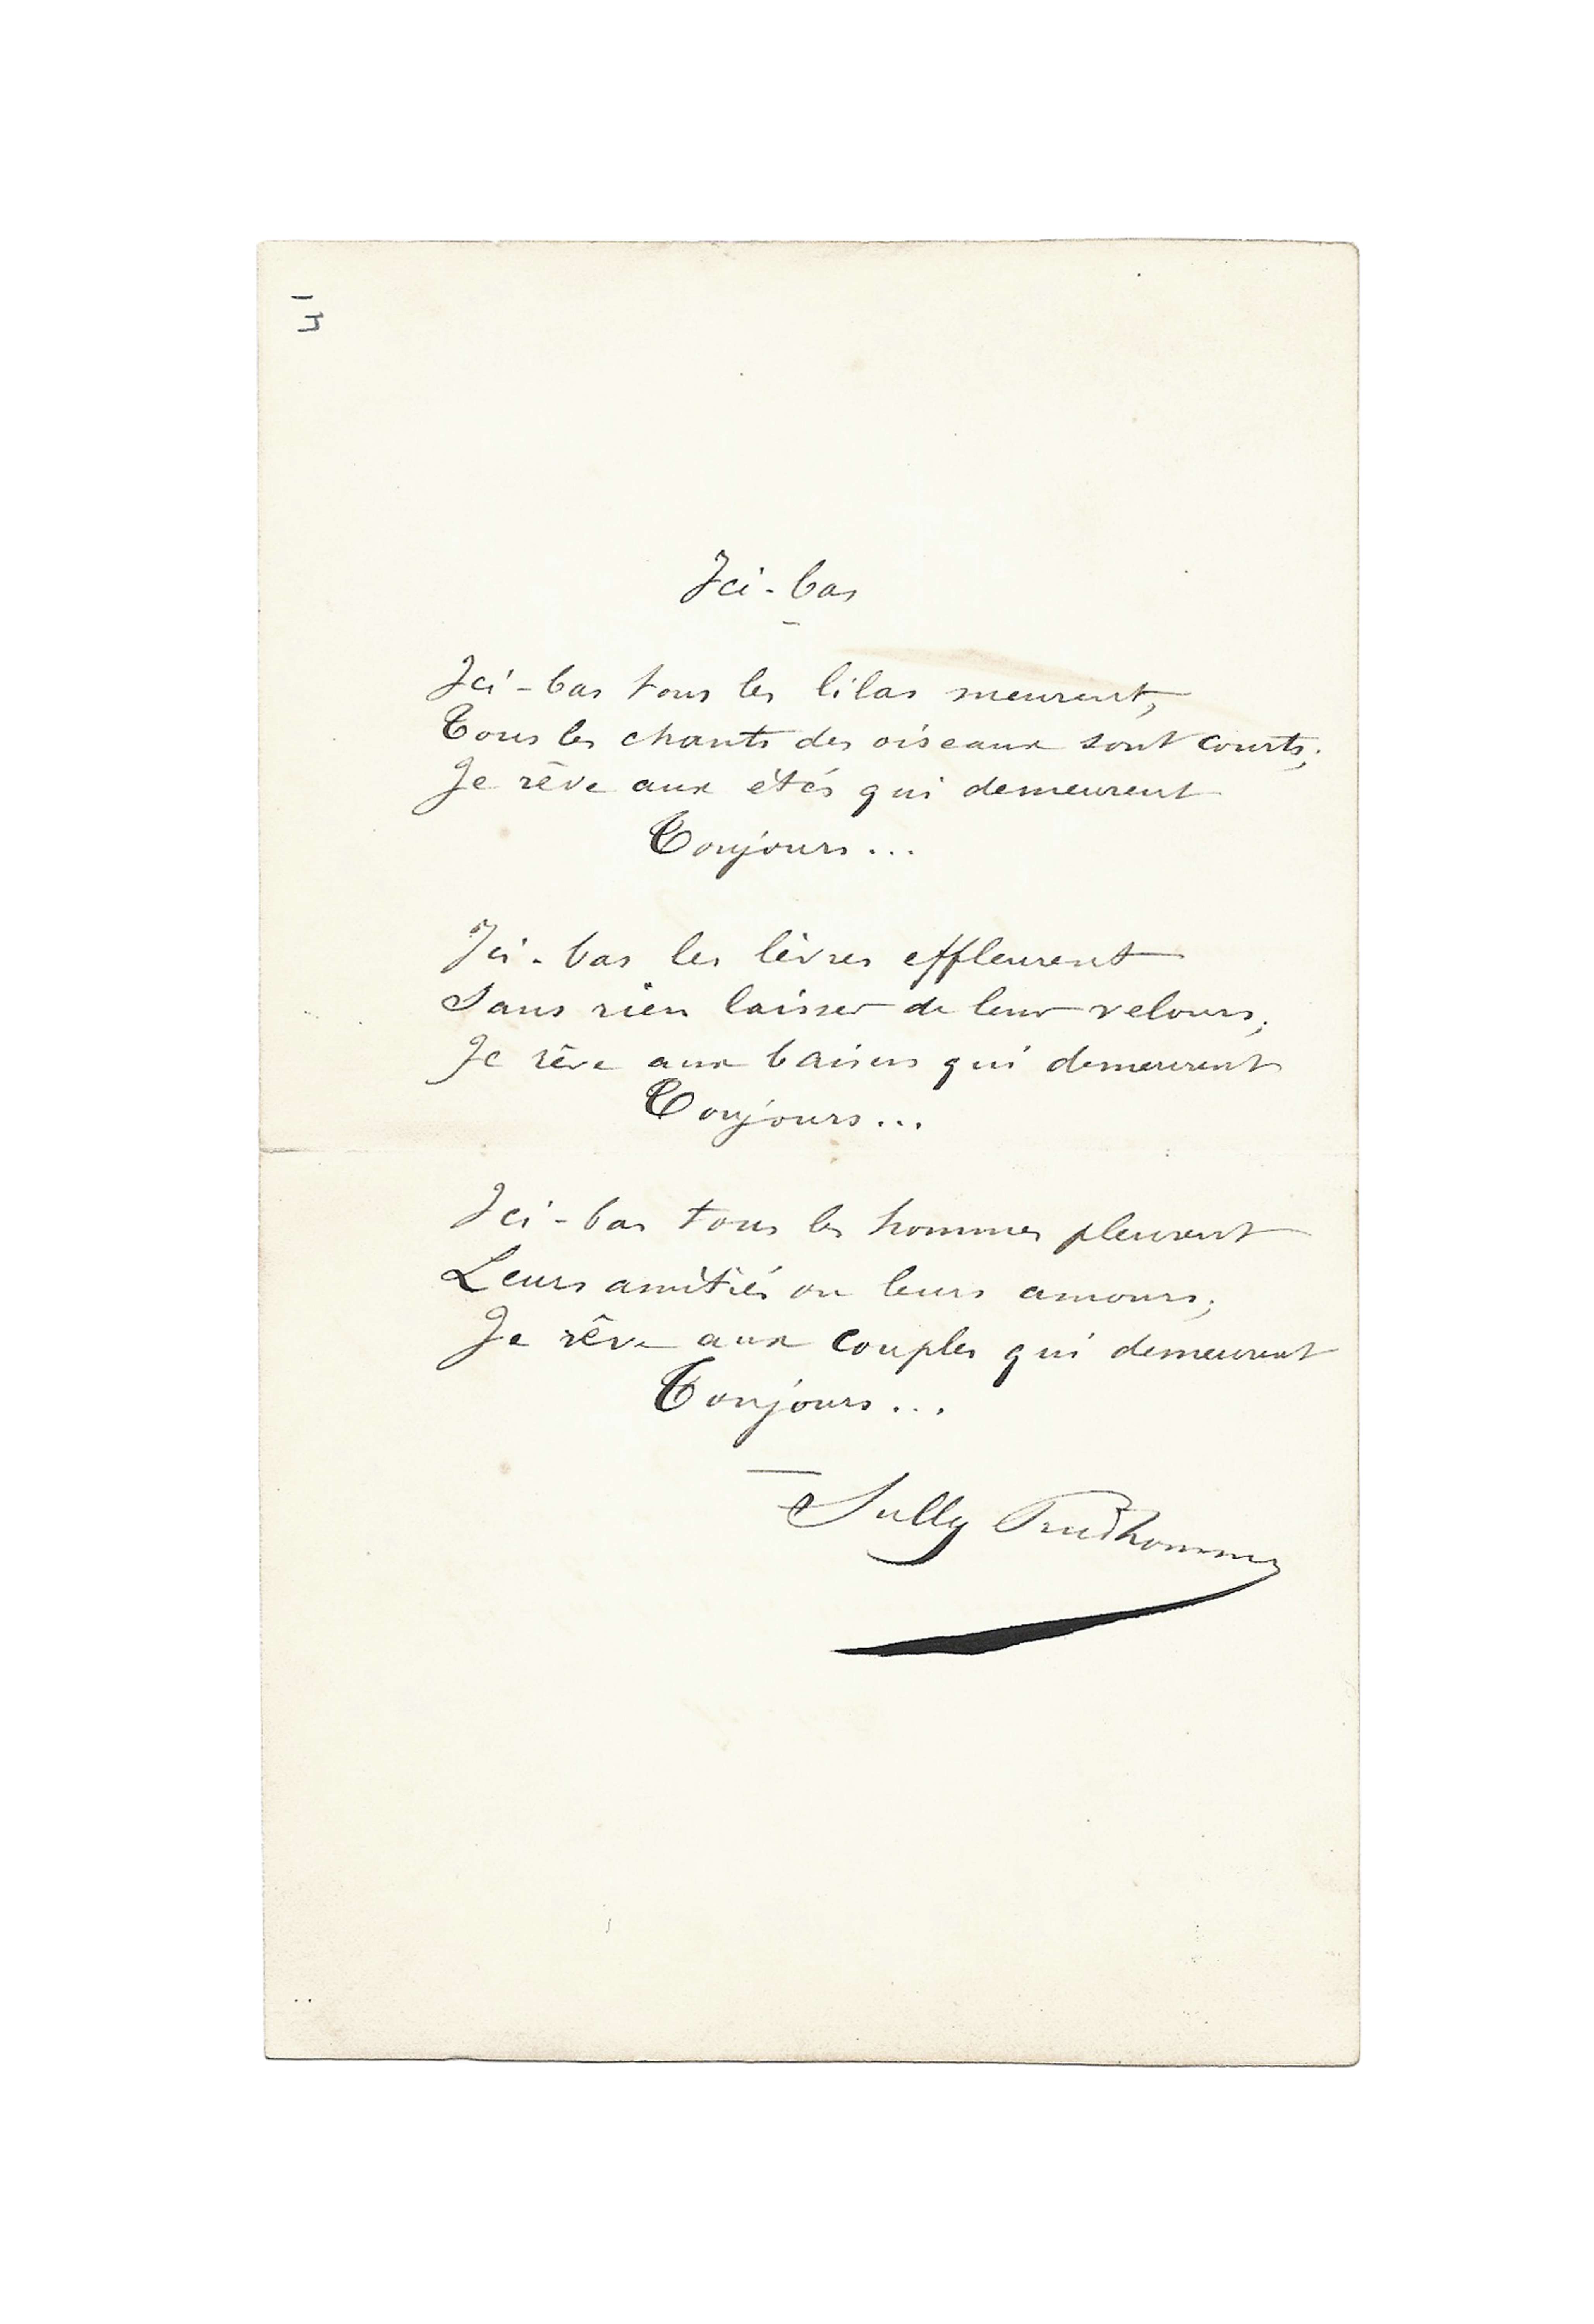 Ici-bas
Ici-bas tous les lilas meurent,
Tous les chants des oiseaux sont courts;
Je rêve aux étés qui demeurent
Toujours...
Ici-bas les lèvres effleurent
Sans rien laisser de leur velours;
Je rêve aux baisers qui demeurent
Toujours...
Ici-bas tous les hommes pleurent
Leurs amitiés ou leurs amours;
Je rêve aux couples qui demeurent
Toujours...
Sully Prudhomme